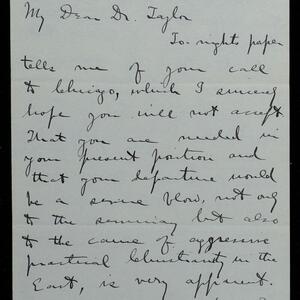 My Dear Dr. Taylor
To-nights paper
tells me of your call
to Chicago, which I sincerely
hope you will not accept.
That you are needed in
your present position and
that your departure would
be a serious blow, not only
to the seminary but also
to the cause of aggressive
practical Christianity in the
East, is very apparent.